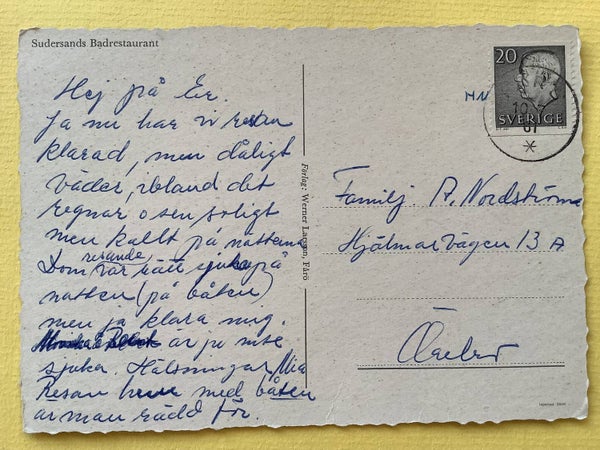 Sudersands Badrestaurant
Hej på Er.
Ja nu har vi resan
klarad, men dåligt
väder, ibland det
regnar o sen soligt
men kallt på nattern
resande
Dom var rätt sjuka på
natten (på båten)
men ja klara mig.
ar ju inte
sjuka. Hälsningar Mia
Resan hem med båten
ar man rädd för.
Förlag: Werner Larsson, Fårö
20
SVERIGE
10
61
Familj. A. Nordström
Hjälmarvägen 13 A
Örebro